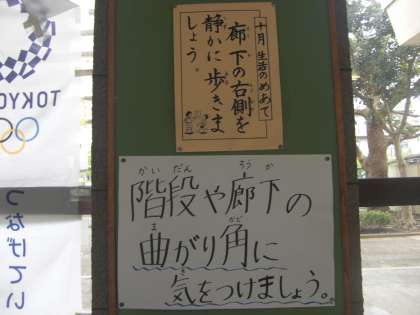 十月 生活のめあて
廊下の右側を
静かに歩きま
しょう。
階段や廊下の
かい だん ろう か
曲がり角に
ま かど
気をつけましょう。
き
TOKYO
つなげてい